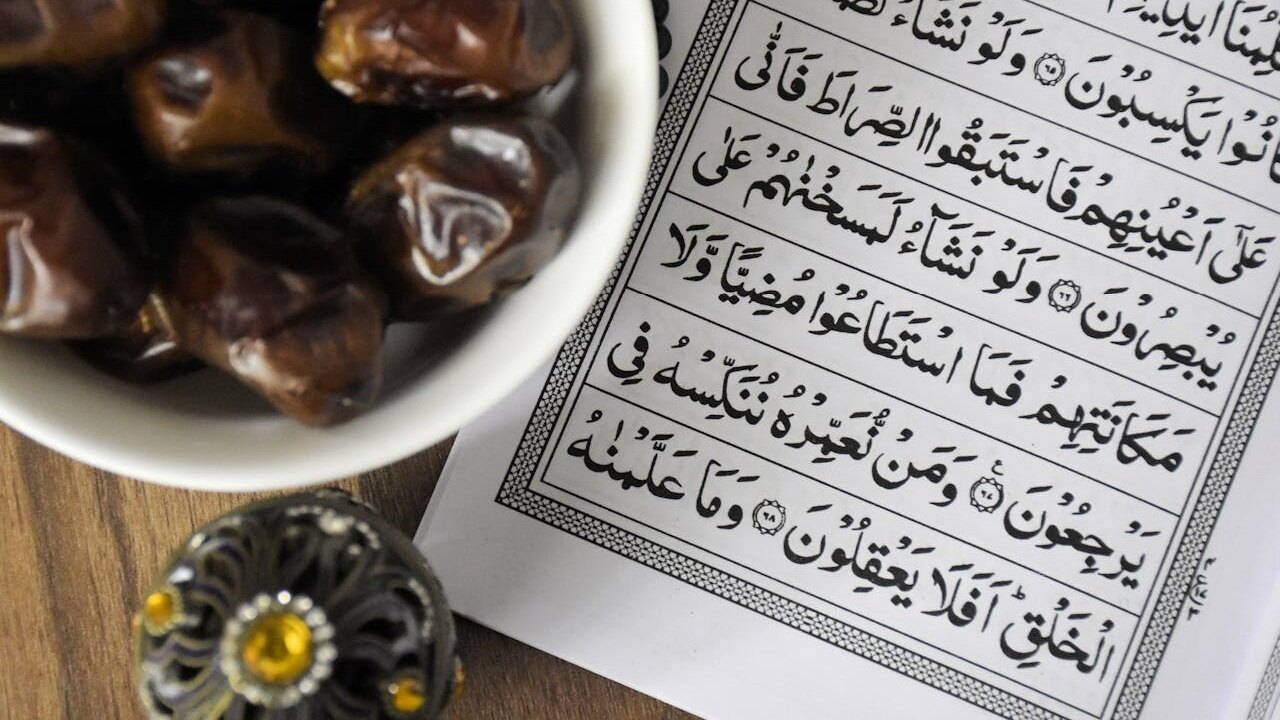 يَكْسِبُوْنَ ﴿۶۵﴾ وَلَوْ نَشَآءُ
عَلٰٓى اَعْيُنِهِمْ فَاسْتَبَقُوا الصِّرَاطَ فَاَنّٰى
يُبْصِرُوْنَ ﴿۶۶﴾ وَلَوْ نَشَآءُ لَمَسَخْنٰهُمْ عَلٰى
مَكَانَتِهِمْ فَمَا اسْتَطَاعُوْا مُضِيًّا وَّلَا
يَرْجِعُوْنَ ﴿۶۷﴾ وَمَنْ نُّعَمِّرْهُ نُنَكِّسْهُ فِي
الْخَلْقِ ؕ اَفَلَا يَعْقِلُوْنَ ﴿۶۸﴾ وَمَا عَلَّمْنٰهُ